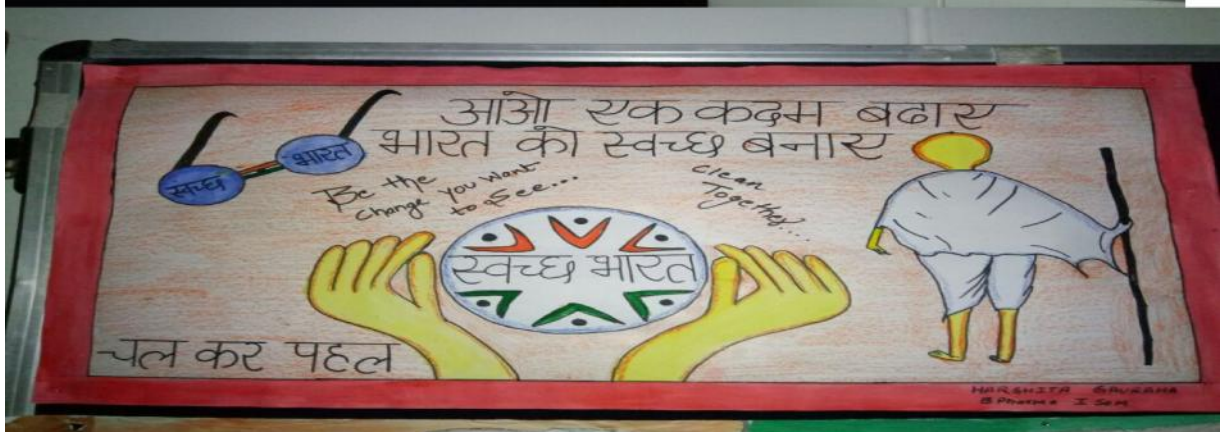 आओ एक कदम बढाए
भारत को स्वच्छ बनाए
स्वच्छ भारत
Be the
change you want
to See...
Clean
Together....
स्वच्छ भारत
चल कर पहल
HARSHITA GAURAHA
B Pharma I Sem